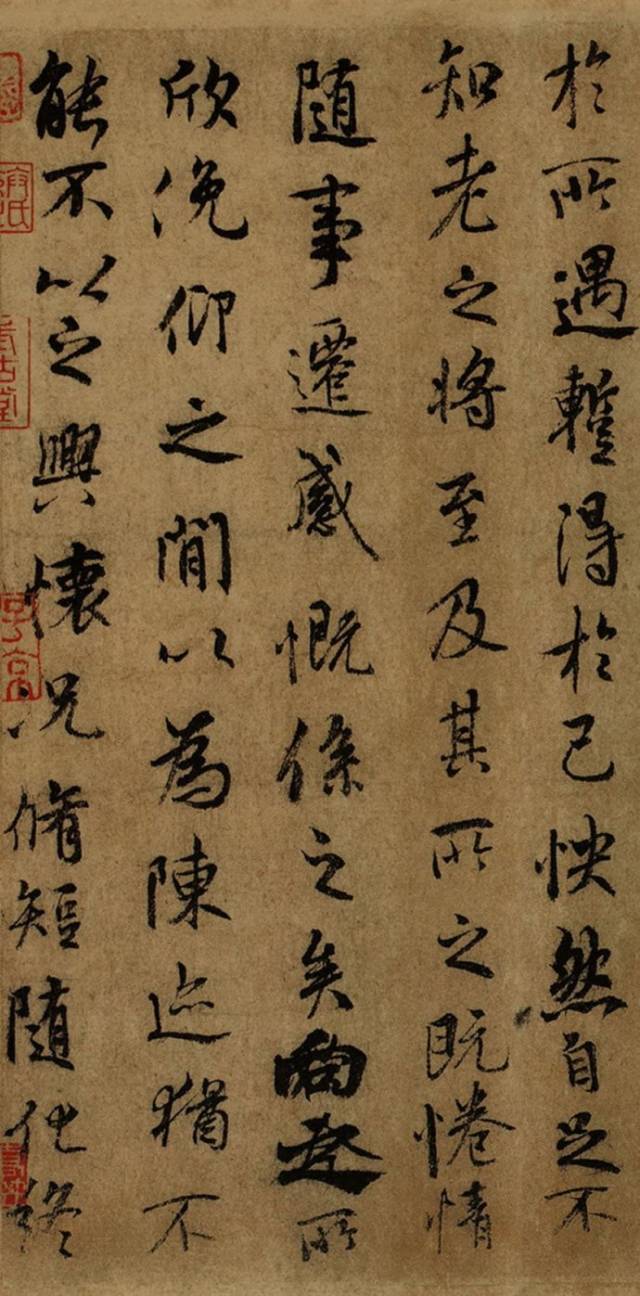 於所遇暫得於己怏然自足不
知老之將至及其所之既惓情
隨事遷感慨係之矣向之所
欣俛仰之閒以為陳迹猶不
能不以之興懷況脩短隨化終